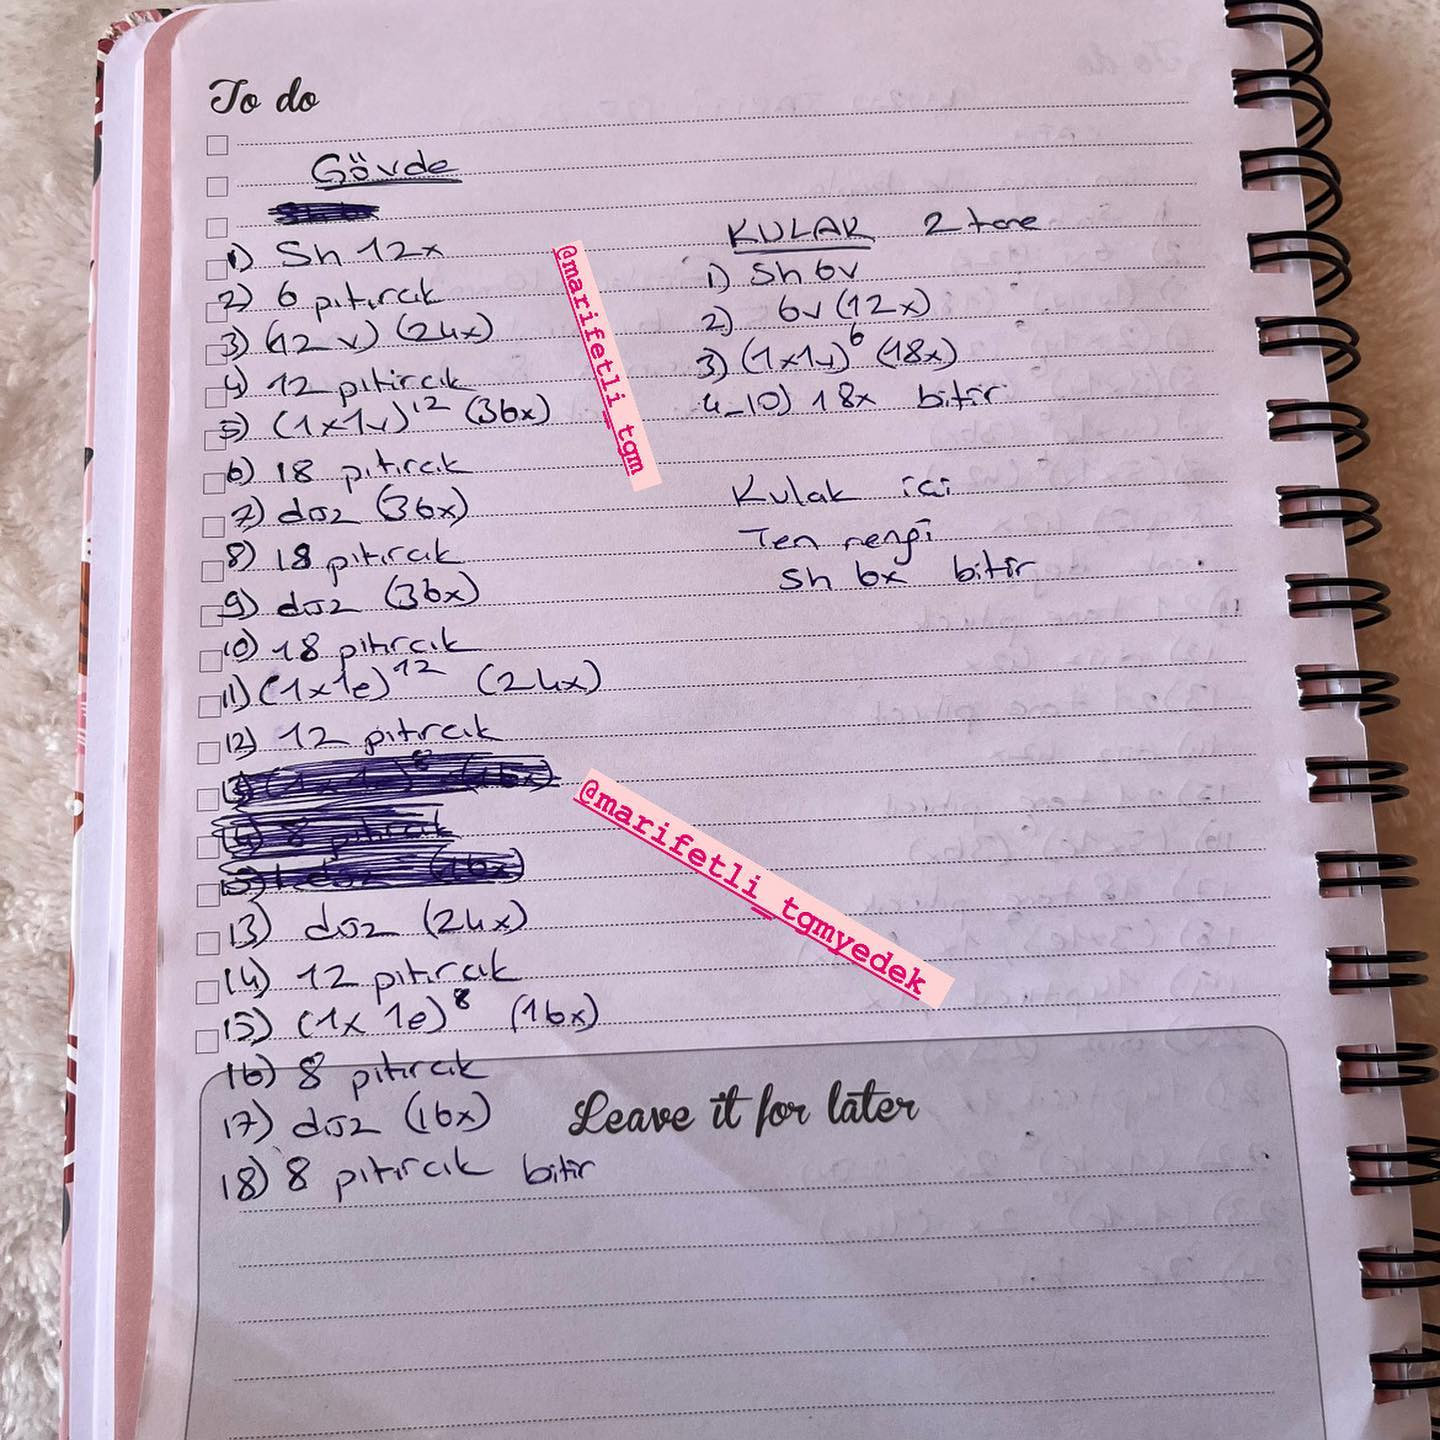 To do
Gövde
1) Sh 12x
2) 6 pıtırcık
3) (12 v) (24x)
4) 12 pıtırcık
5) (1x1v)12 (36x)
6) 18 pıtırcık
7) düz (36x)
8) 18 pıtırcık
9) düz (36x)
10) 18 pıtırcık
11) (1x1e)12 (24x)
12) 12 pıtırcık
13) düz (24x)
14) 12 pıtırcık
15) (1x 1e)8 (16x)
16) 8 pıtırcık
17) düz (16x)
18) 8 pıtırcık bitir
KULAK 2 tane
1) Sh 6v
2) 6v (12x)
3) (1x1v)6 (18x)
4-10) 18x bitir
Kulak içi
Ten rengi
Sh 6x bitir
@marifetli_tgm
@marifetli_tgmyedek
Leave it for later